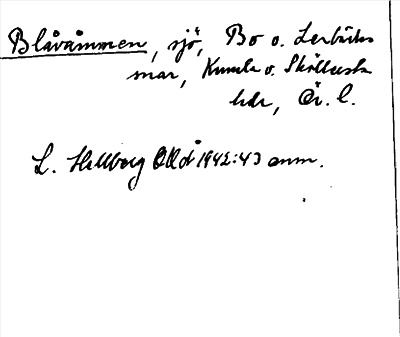 Blåvammen, sjö, Bo o. Lerbäcks
snar, Kumla o. Sköllersta
hdr, Ör. l.
L. Hellberg OUÅ 1942:43 anm.